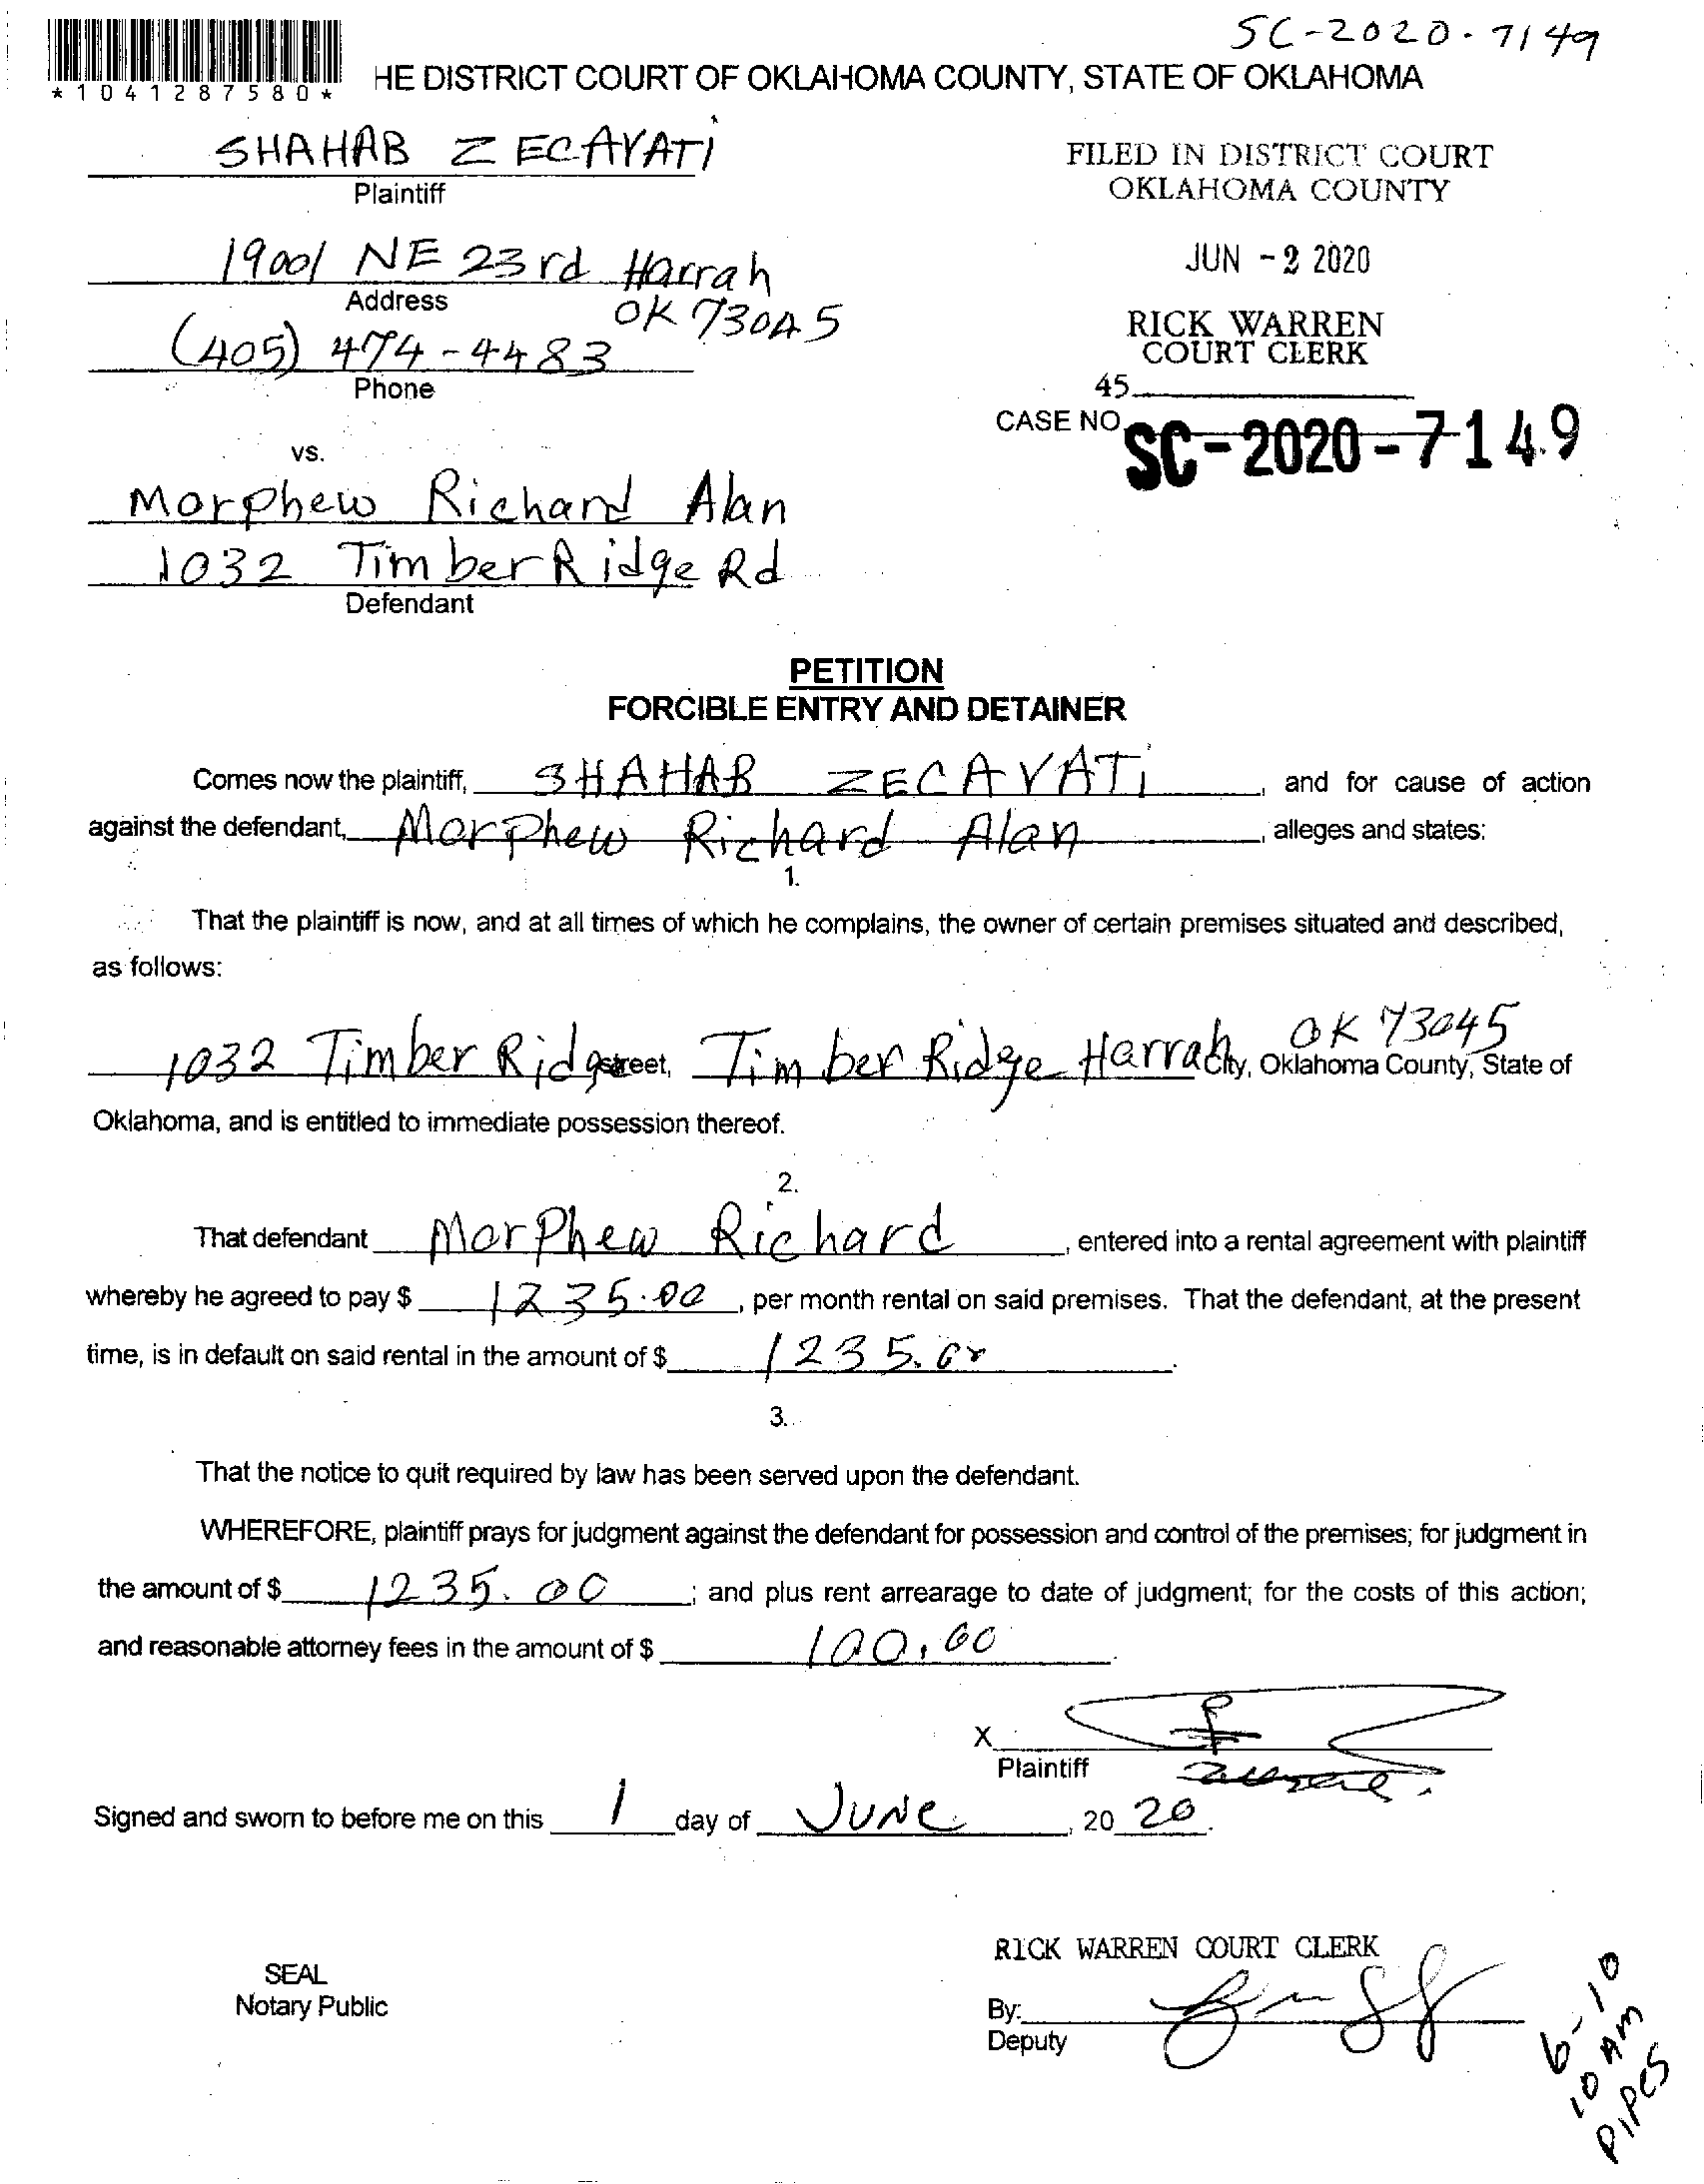 SC-2020-7149
*1041287580*
HE DISTRICT COURT OF OKLAHOMA COUNTY, STATE OF OKLAHOMA
SHAHAB ZECAVATI
Plaintiff
FILED IN DISTRICT COURT
OKLAHOMA COUNTY
19001 NE 23rd Harrah
Address
OK 73045
JUN - 2 2020
(405) 474-4483
Phone
RICK WARREN
COURT CLERK
45
CASE NO. SC-2020-7149
vs.
Morphew Richard Alan
1032 Timber Ridge Rd
Defendant
PETITION
FORCIBLE ENTRY AND DETAINER
Comes now the plaintiff, SHAHAB ZECAVATI, and for cause of action
against the defendant, Morphew Richard Alan, alleges and states:
1.
That the plaintiff is now, and at all times of which he complains, the owner of certain premises situated and described,
as follows:
1032 Timber Ridge street, Timber Ridge Harrah City, OK 73045 Oklahoma County, State of
Oklahoma, and is entitled to immediate possession thereof.
2.
That defendant MorPhew Richard, entered into a rental agreement with plaintiff
whereby he agreed to pay $ 1235.00, per month rental on said premises. That the defendant, at the present
time, is in default on said rental in the amount of $ 1235.00.
3.
That the notice to quit required by law has been served upon the defendant.
WHEREFORE, plaintiff prays for judgment against the defendant for possession and control of the premises; for judgment in
the amount of $ 1235.00; and plus rent arrearage to date of judgment; for the costs of this action;
and reasonable attorney fees in the amount of $ 100.00.
X
Plaintiff
Signed and sworn to before me on this 1 day of JUNE, 20 20.
RICK WARREN COURT CLERK
SEAL
Notary Public
By:
Deputy
6-10
10 AM
PIPES